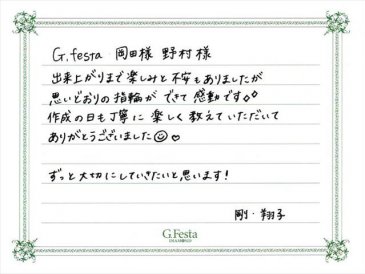 G.festa 岡田様 野村様
出来上がりまで楽しみと不安もありましたが
思いどおりの指輪ができて感動です
作成の日も丁寧に楽しく教えていただいて
ありがとうございました
ずっと大切にしていきたいと思います!
剛・翔子
G.Festa
DIAMOND